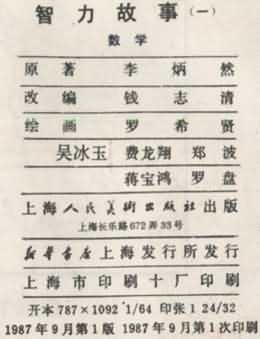 智力故事(一)
数学
原著 李炳然
改编 钱志清
绘画 罗希贤
吴冰玉 费龙翔 郑波
蒋宝鸿 罗盘
上海人民美术出版社出版
上海长乐路672弄33号
新华书店上海发行所发行
上海市印刷十厂印刷
开本787×1092 1/64 印张1 24/32
1987年9月第1版 1987年9月第1次印刷